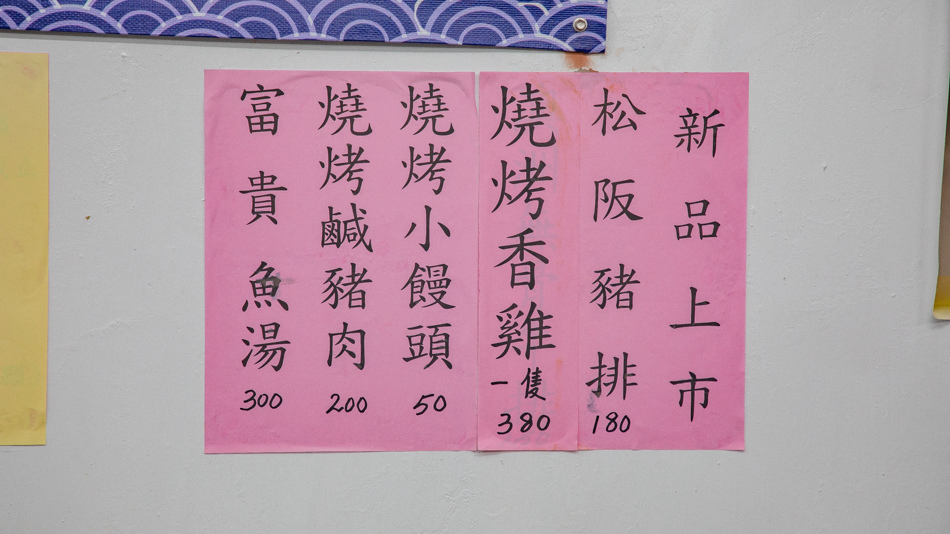 新品上市
松阪豬排180
燒烤香雞一隻380
燒烤小饅頭50
燒烤鹹豬肉200
富貴魚湯300